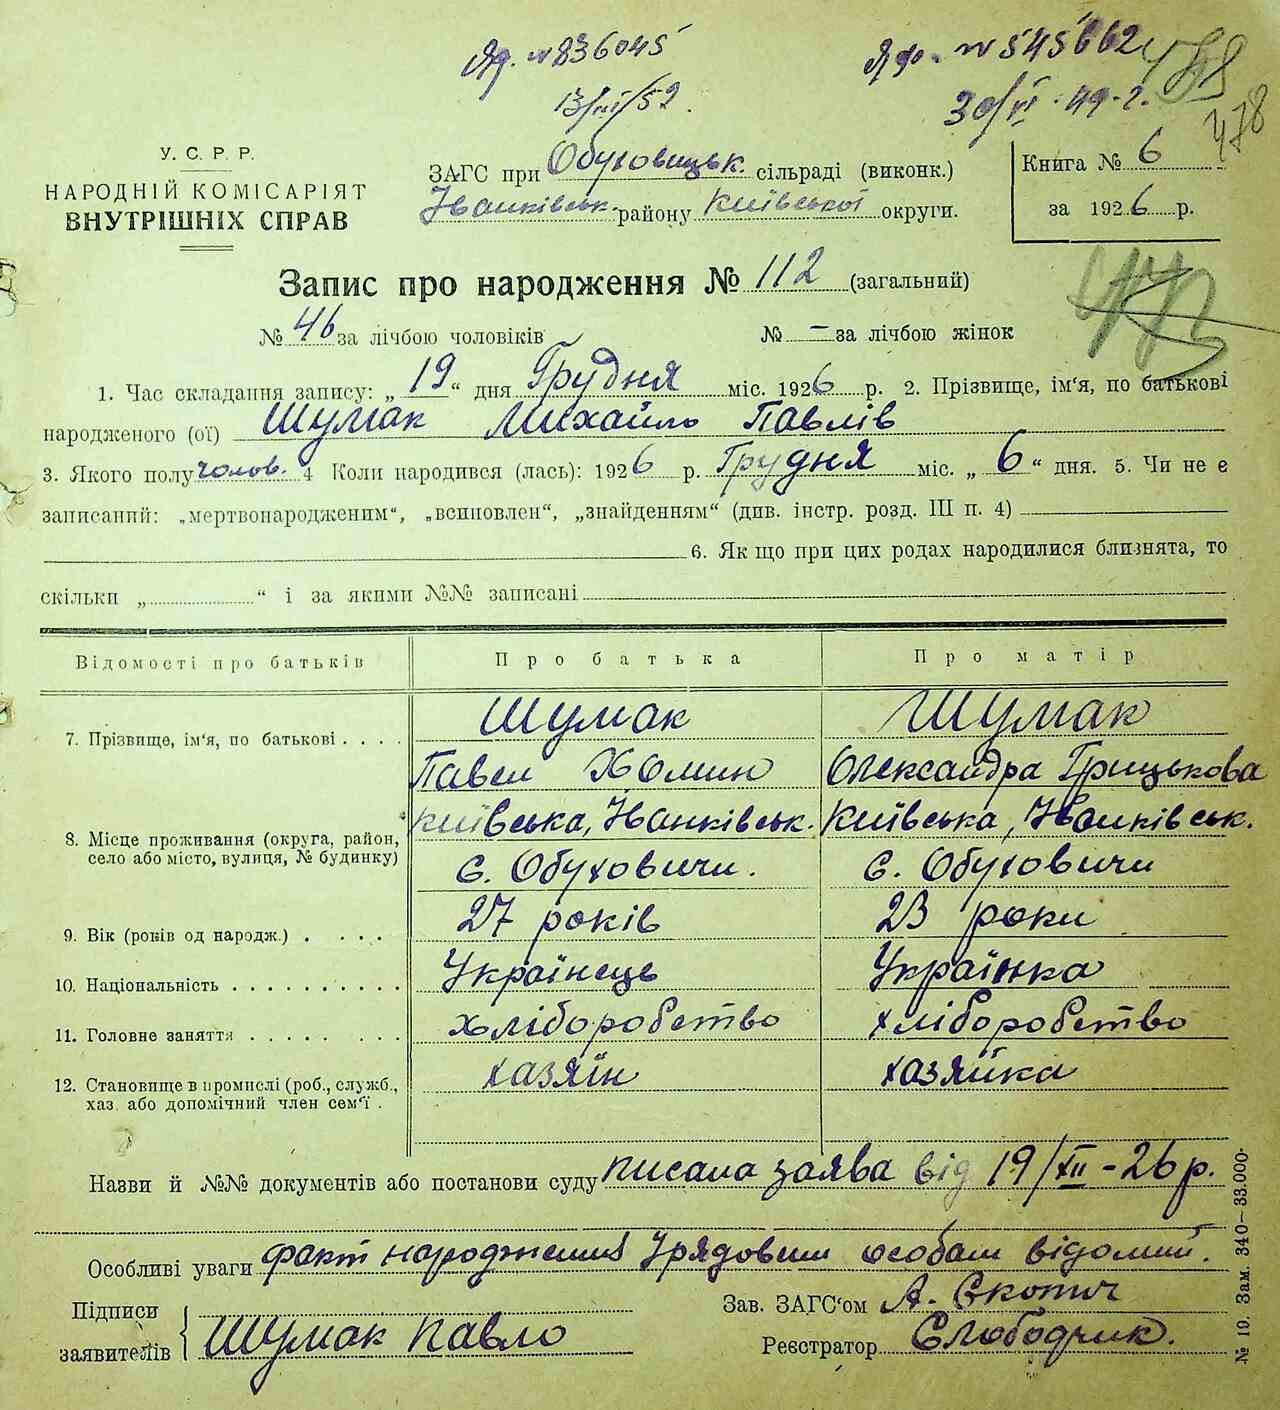 № 836045
№ 545662
13/III/52.
30/VI-49 г.
478
У. С. Р. Р.
НАРОДНІЙ КОМІСАРІЯТ
ВНУТРІШНІХ СПРАВ
ЗАГС при Обуховицьк. сільраді (виконк.)
Іванківськ. району Київської округи.
Книга № 6
за 1926 р.
Запис про народження № 112 (загальний)
№ 46 за лічбою чоловіків
№ — за лічбою жінок
1. Час складання запису: „ 19 “ дня Грудня міс. 1926 р. 2. Прізвище, ім‘я, по батькові
народженого (ої) Шумак Михайло Павлів
3. Якого полу чолов. 4 Коли народився (лась): 1926 р. Грудня міс. „ 6 “ дня. 5. Чи не є
записаний: „мертвонародженим“, „всиновлен“, „знайденням“ (див. інстр. розд. III п. 4)
6. Як що при цих родах народилися близнята, то
скільки „ “ і за якими №№ записані
Відомості про батьків
Про батька
Про матір
7. Прізвище, ім‘я, по батькові . . . .
Шумак
Павел Хомин
Шумак
Олександра Грицькова
8. Місце проживання (округа, район,
село або місто, вулиця, № будинку)
Київська, Іванківськ.
с. Обуховичи.
Київська, Іванківськ.
с. Обуховичи
9. Вік (років од народж.) . . . .
27 років
23 роки
10. Національність . . . . . . . . . .
Українець
Українка
11. Головне заняття . . . . . . . .
хліборобство
хліборобство
12. Становище в промислі (роб., служб.,
хаз. або допомічний член сем‘ї .
хазяїн
хазяйка
Назви й №№ документів або постанови суду писана заява від 19/XII-26 р.
Особливі уваги факт народження Урядовим особам відомий.
Підписи
заявителів
Шумак Павло
Зав. ЗАГС‘ом А. Скопич
Реєстратор Слободчик.
№ 10. Зам. 340—33.000.